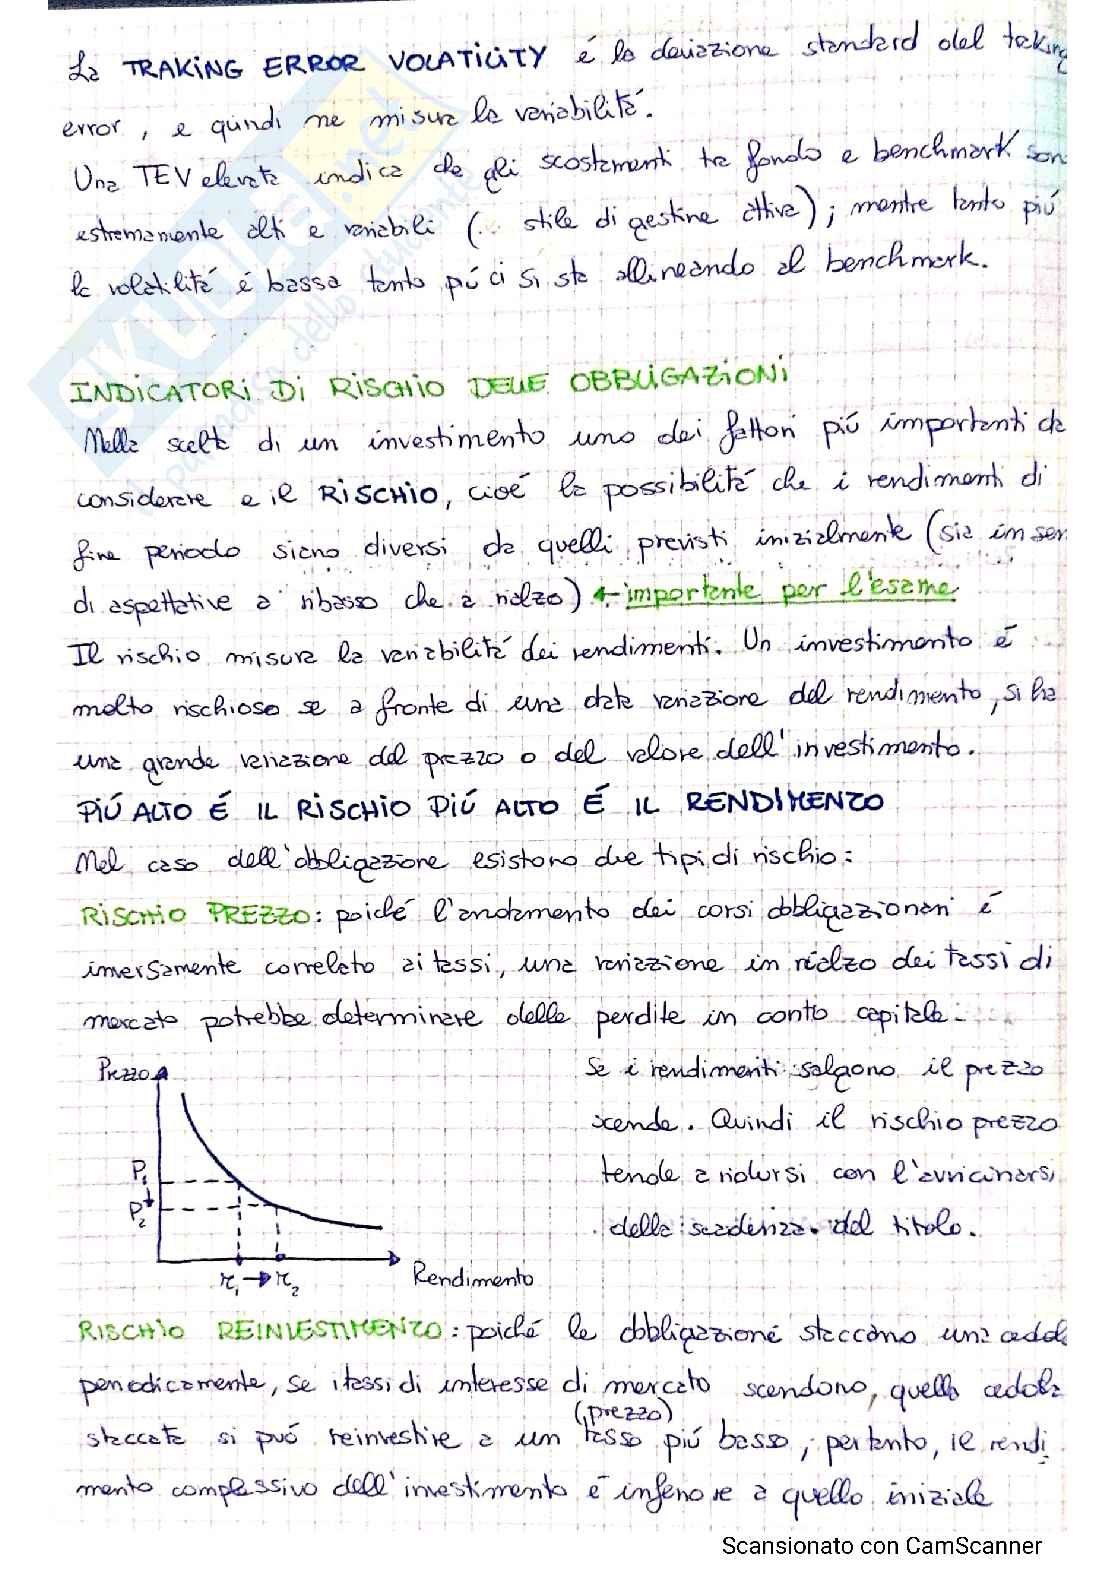 La TRAKING ERROR VOLATILITY é la deviazione standard del traking
error, e quindi ne misura la variabilitá.
Una TEV elevata indica che gli scostamenti tra fondo e benchmark son
estremamente alti e variabili (∴ stile di gestine attiva); mentre tanto piú
la volatilitá é bassa tanto piú ci si sta allineando al benchmark.
INDICATORI DI RISCHIO DELLE OBBLIGAZIONI
Nella scelta di un investimento uno dei fattori piú importanti da
considerare e il RISCHIO, cioé la possibilitá che i rendimenti di
fine periodo siano diversi da quelli previsti inizialmente (sia in sen
di aspettative a ribasso che a rialzo) ← importante per l'esame
Il rischio misura la variabilitá dei rendimenti. Un investimento é
molto rischioso se a fronte di una data variazione del rendimento, si ha
una grande variazione del prezzo o del valore dell'investimento.
PIÚ ALTO É IL RISCHIO PIÚ ALTO É IL RENDIMENTO
Nel caso dell'obbligazione esistono due tipi di rischio:
RISCHIO PREZZO: poiché l'andamento dei corsi obbligazzionari é
inversamente correlato ai tassi, una variazione in rialzo dei tassi di
mercato potrebbe determinare delle perdite in conto capitale.
Prezzo
Se i rendimenti salgono il prezzo
scende. Quindi il rischio prezzo
P₁
tende a ridursi con l'avvicinarsi
P₂
della scadenza del titolo.
r₁ → r₂
Rendimento
RISCHIO REINVESTIMENTO: poiché le obbligazioné staccano una cedol
periodicamente, se i tassi di interesse di mercato scendono, quella cedola
(prezzo)
staccata si puó reinvestire a un tasso piú basso; pertanto, il rendi
mento complessivo dell'investimento é inferiore a quello iniziale
SKUOLA.net
Il paradiso dello studente
Scansionato con CamScanner